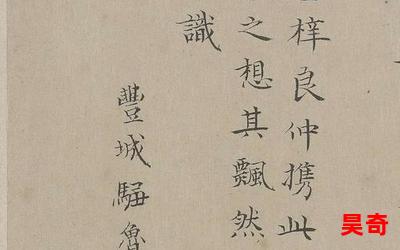 梓良仲攜此
之想其飄然
識
豐城騷魯
昊奇